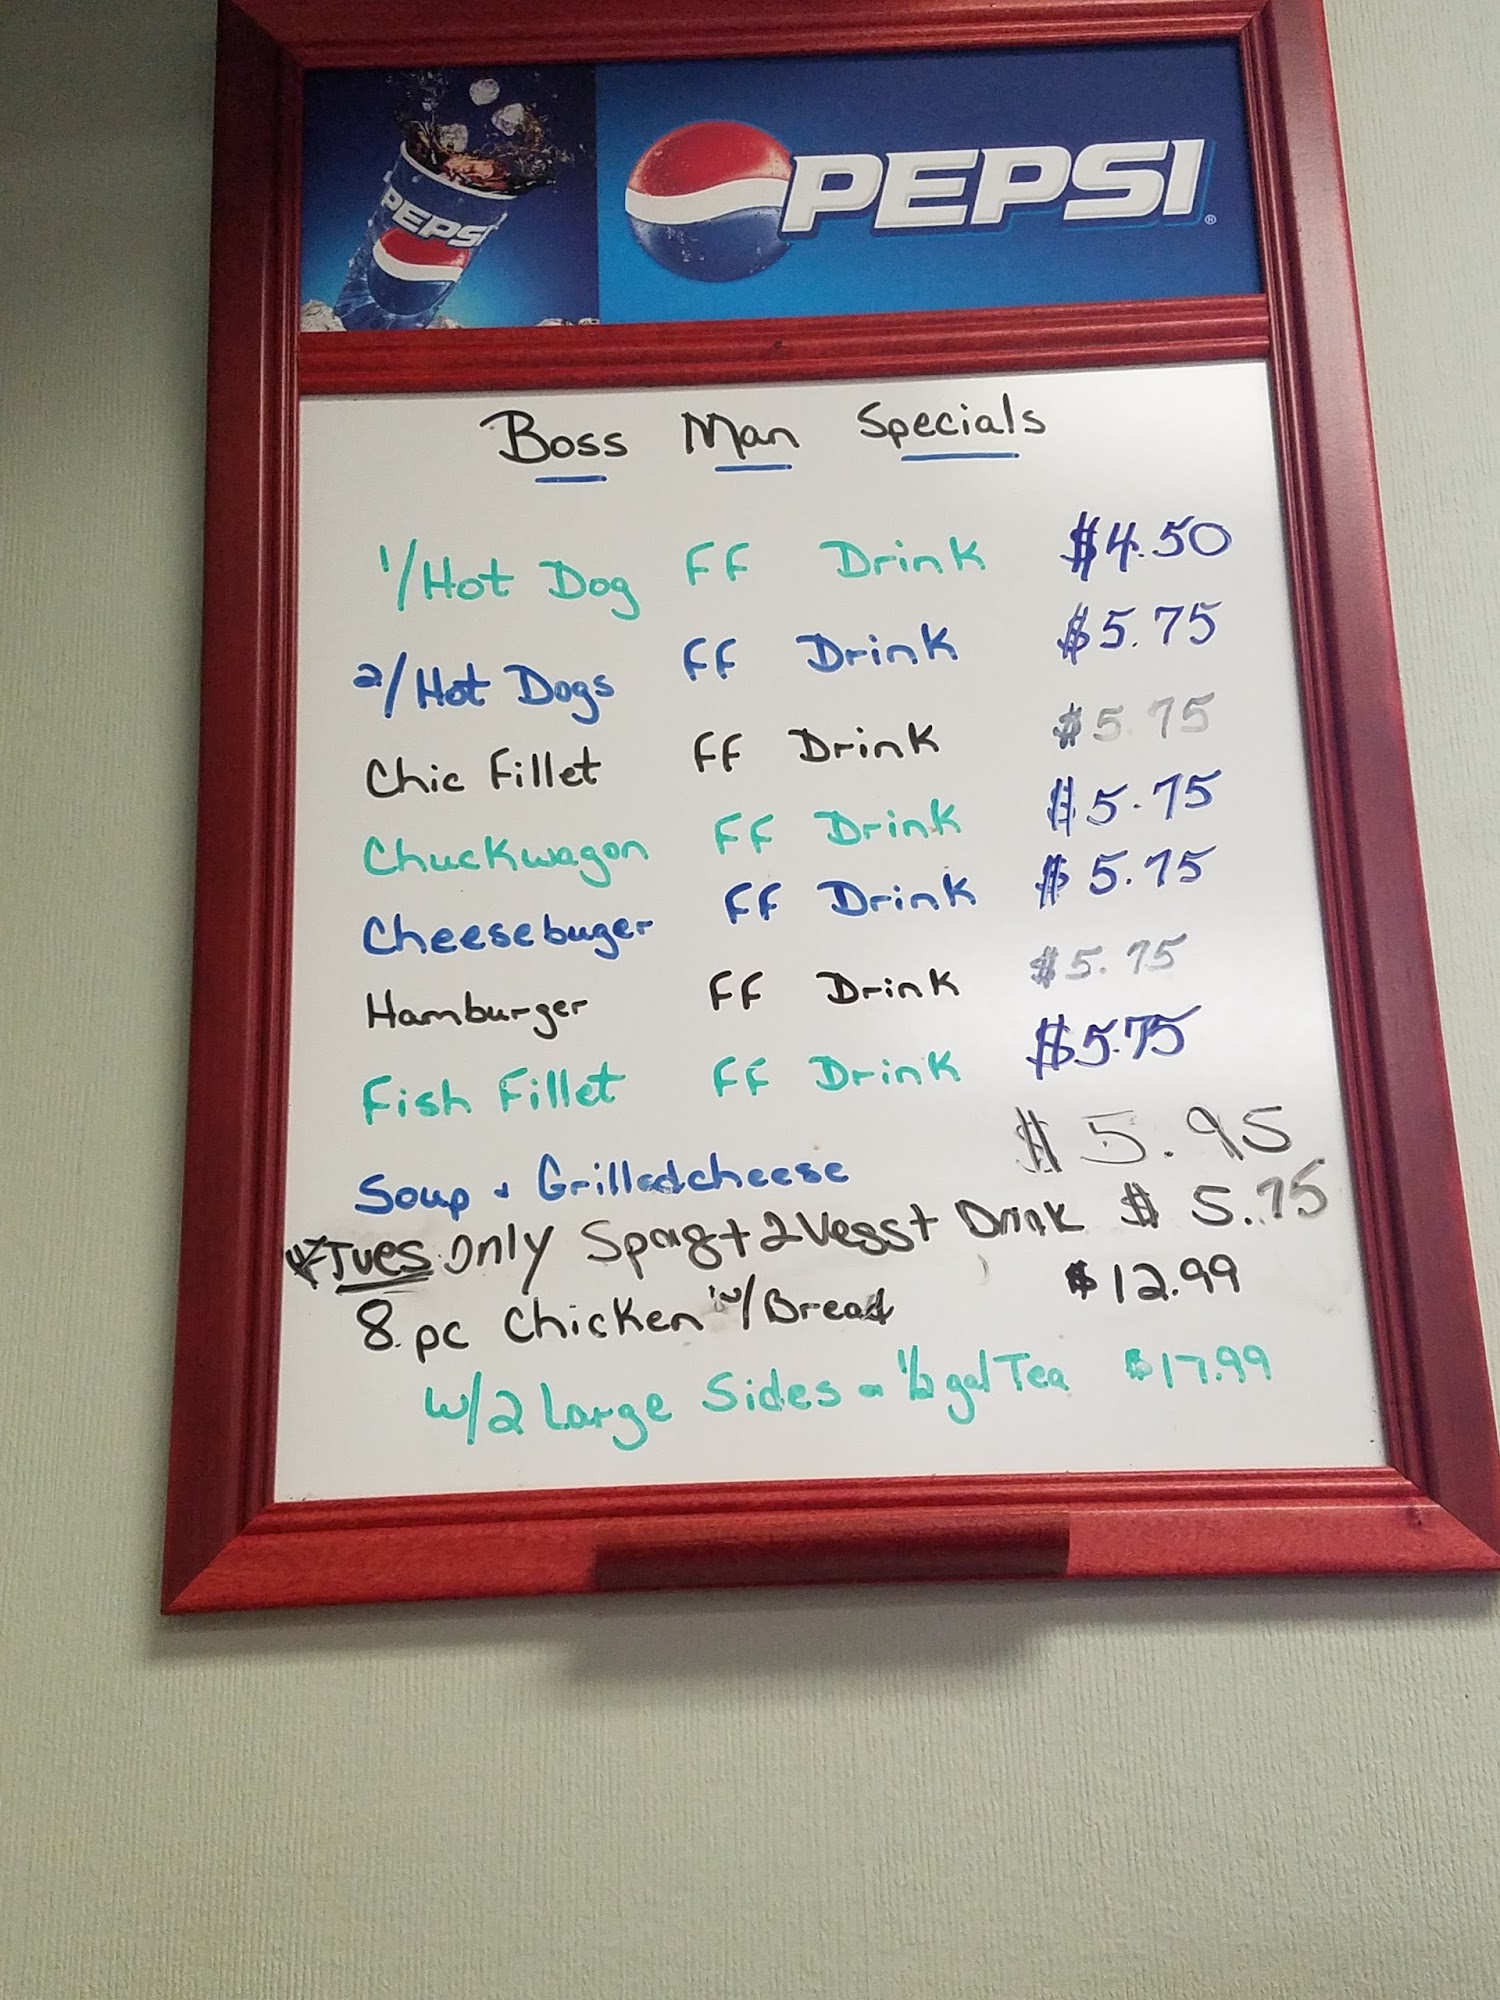 PEPSI
PEPSI®
Boss Man Specials
1/Hot Dog FF Drink $4.50
2/Hot Dogs FF Drink $5.75
Chic Fillet FF Drink $5.75
Chuckwagon FF Drink $5.75
Cheesebuger FF Drink $5.75
Hamburger FF Drink $5.75
Fish Fillet FF Drink $5.75
Soup & Grilledcheese $5.95
*Tues only Spag+2Vegs+ Drink $5.75
8 pc Chicken w/Bread $12.99
w/2 Large Sides 1/2 gal Tea $17.99